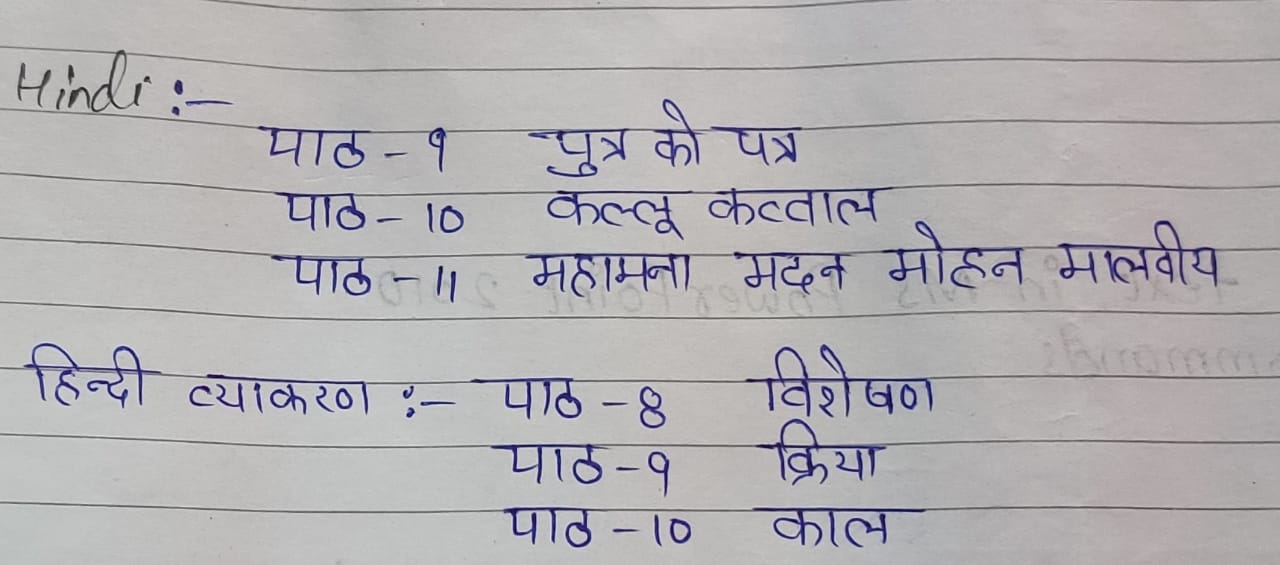 Hindi :-
पाठ - 9 पुत्र को पत्र
पाठ - 10 कल्लू कव्वाल
पाठ - 11 महामना मदन मोहन मालवीय
हिन्दी व्याकरण :- पाठ - 8 विशेषण
पाठ - 9 क्रिया
पाठ - 10 काल